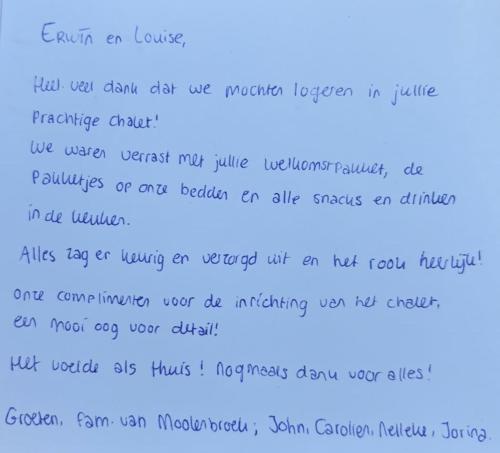 Erwin en Louise,
Heel veel dank dat we mochten logeren in jullie
Prachtige chalet!
We waren verrast met jullie welkomstpakket, de
Pakketjes op onze bedden en alle snacks en drinken
in de keuken.
Alles zag er keurig en verzorgd uit en het rook heerlijk!
Onze complimenten voor de inrichting van het chalet,
een mooi oog voor detail!
Het voelde als thuis! Nogmaals dank voor alles!
Groeten, fam. van Moolenbroek; John, Carolien, Nelleke, Jorina.